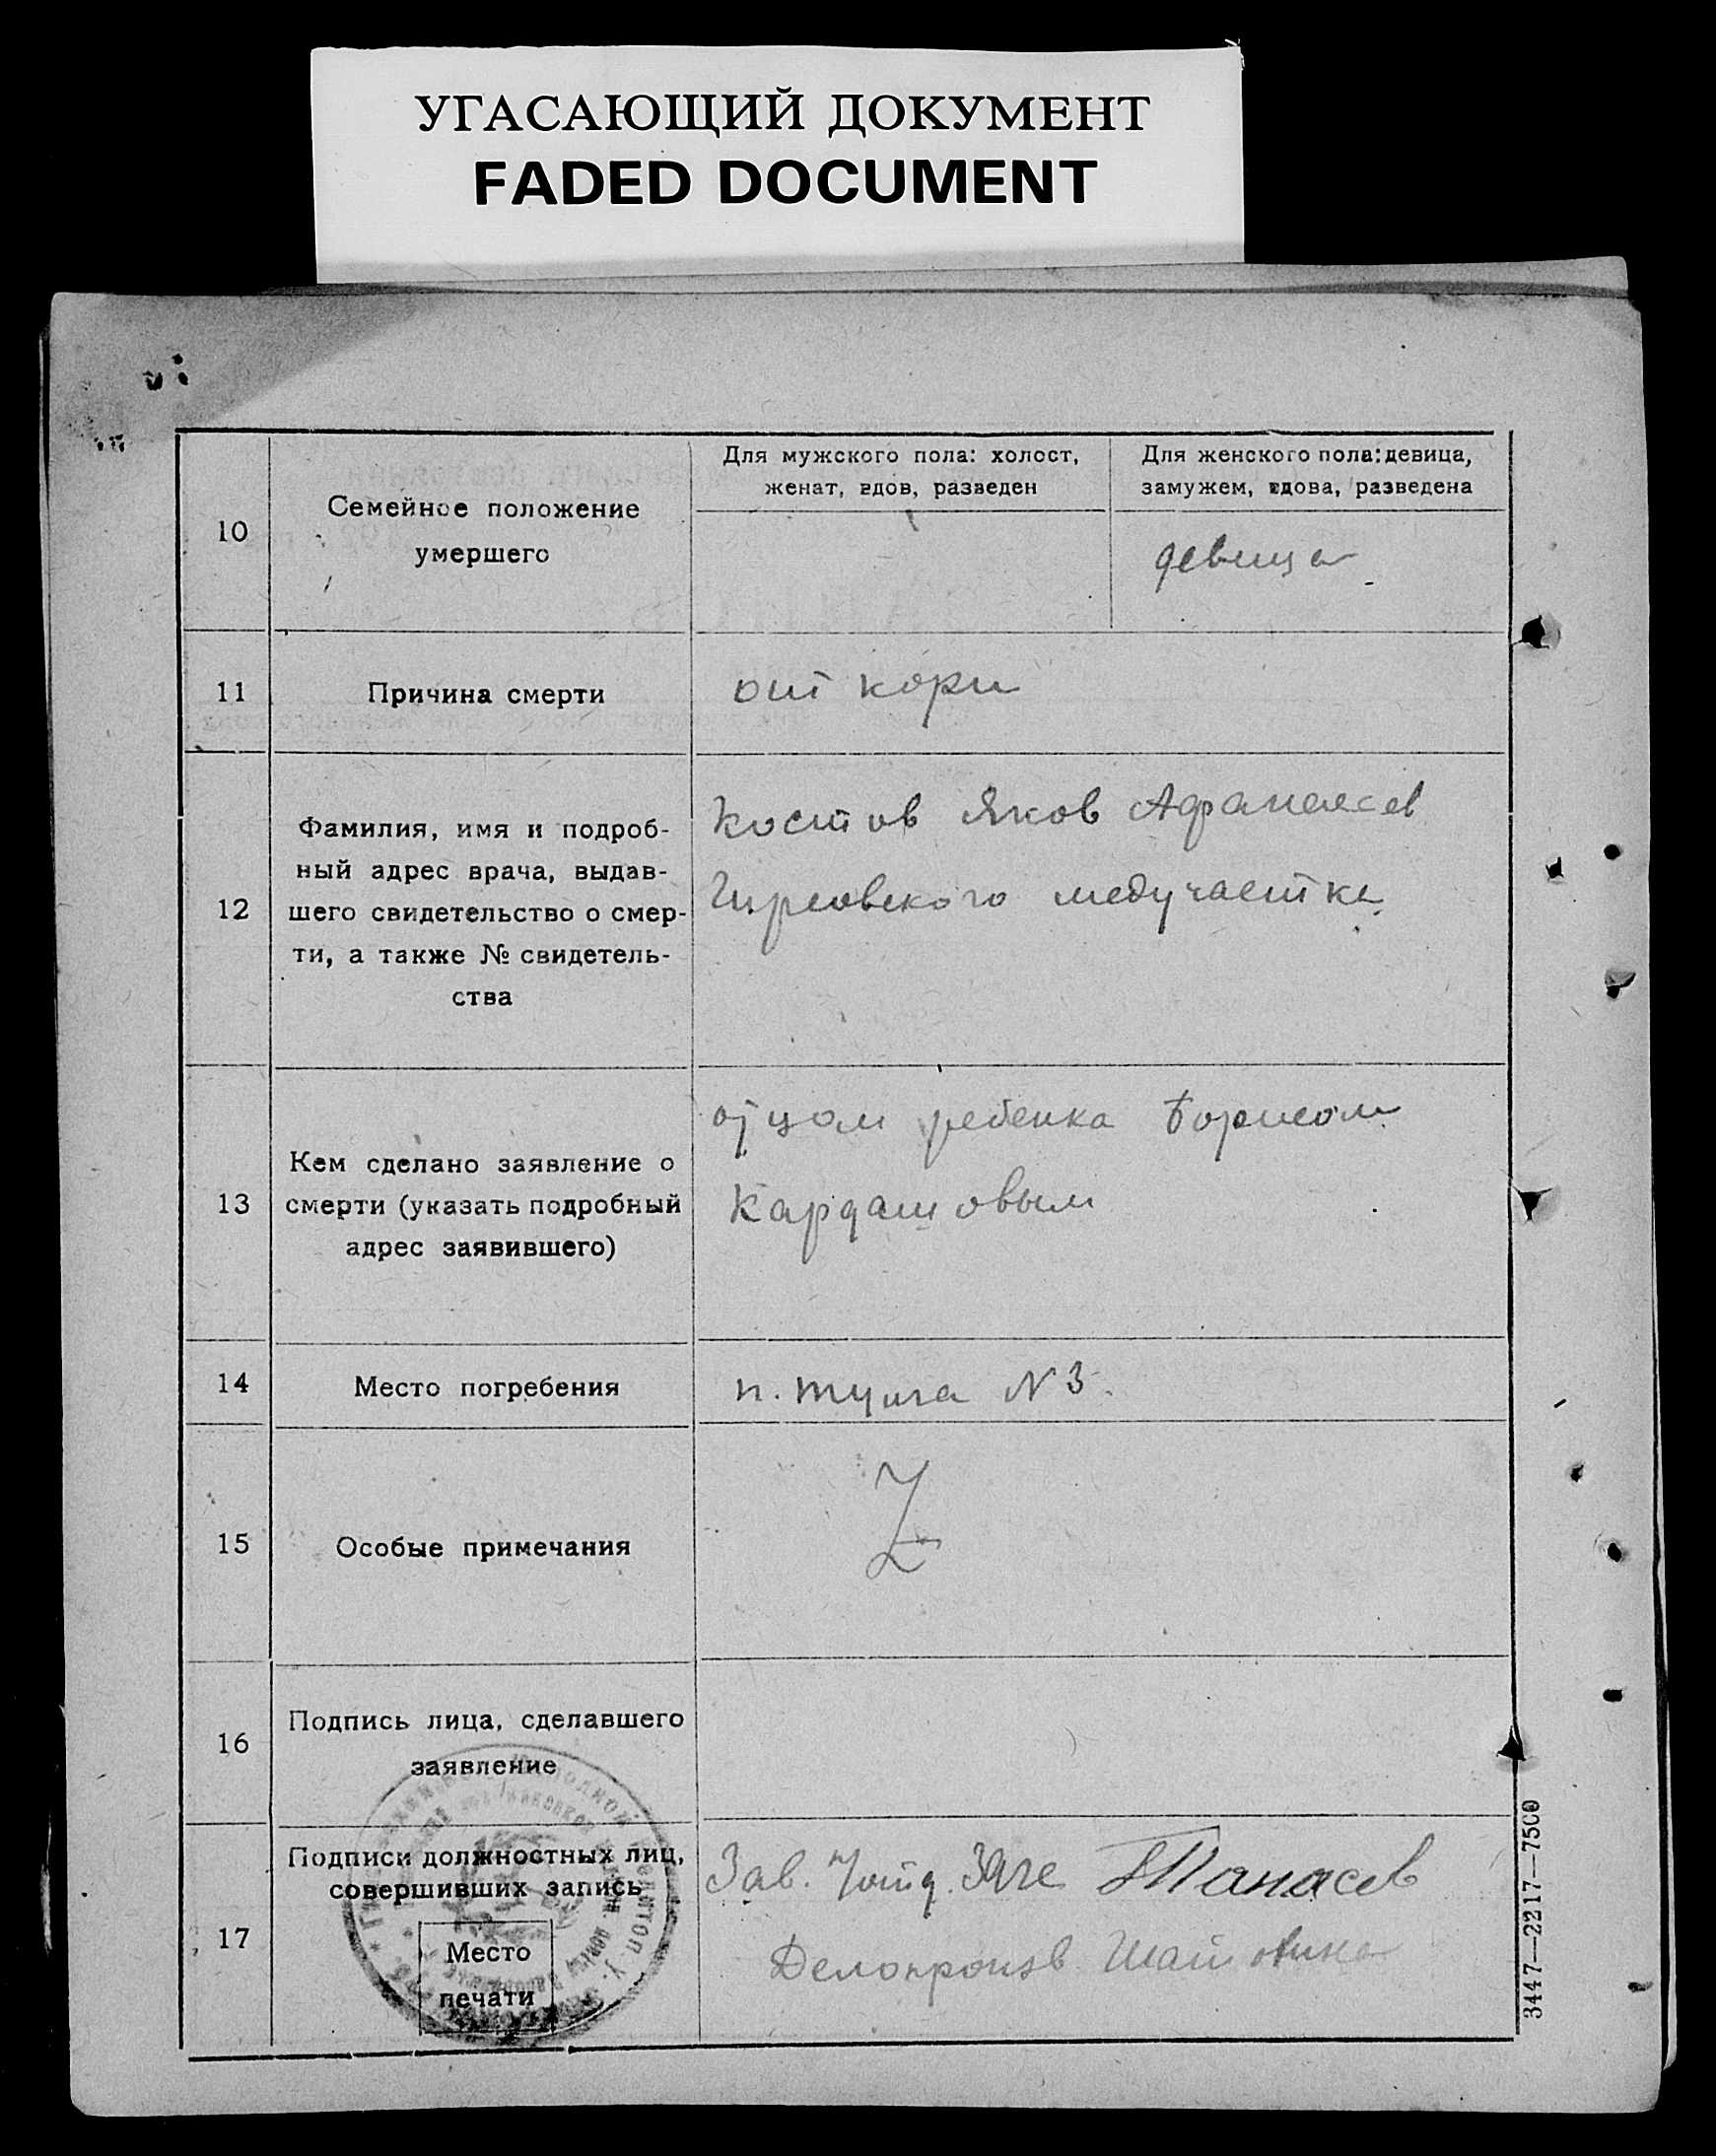 УГАСАЮЩИЙ ДОКУМЕНТ
FADED DOCUMENT
10
Семейное положение
умершего
Для мужского пола: холост,
женат, вдов, разведен
Для женского пола: девица,
замужем, вдова, разведена
девица
11
Причина смерти
от кори
12
Фамилия, имя и подроб-
ный адрес врача, выдав-
шего свидетельство о смер-
ти, а также № свидетель-
ства
Костов Яков Афанасев
медучастка
13
Кем сделано заявление о
смерти (указать подробный
адрес заявившего)
отцом ребенка Борисом
Кардашовым
14
Место погребения
п. N 3.
15
Особые примечания
Z
16
Подпись лица, сделавшего
заявление
17
Подписи должностных лиц,
совершивших запись
Место
печати
Зав. Танасев
Делопроизв
3447—2217—7500